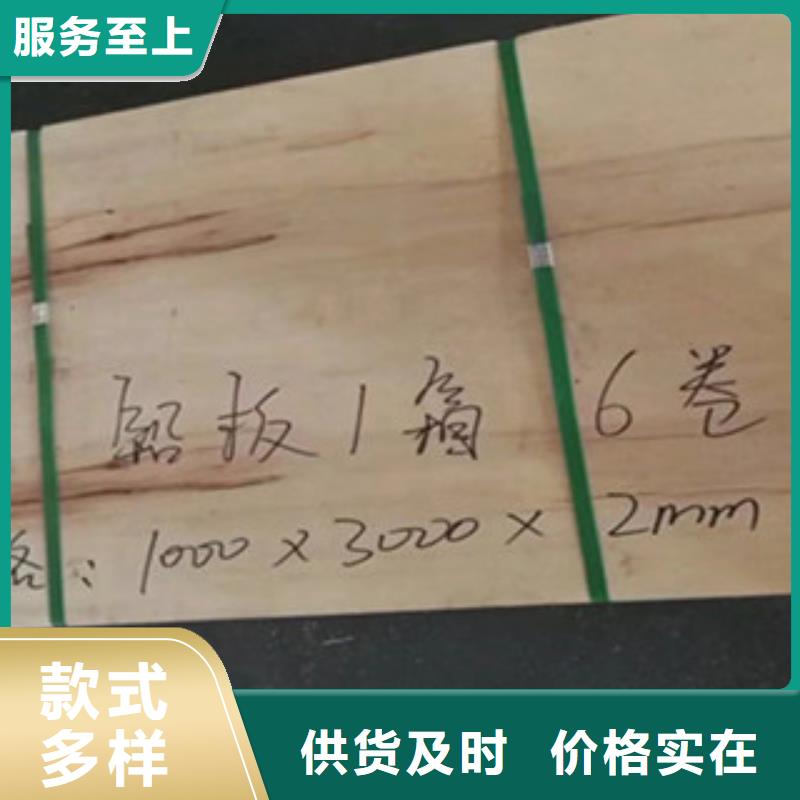 服务至上
铅板1箱 6卷
格：1000×3000×2mm
款式
多样
供货及时 价格实在